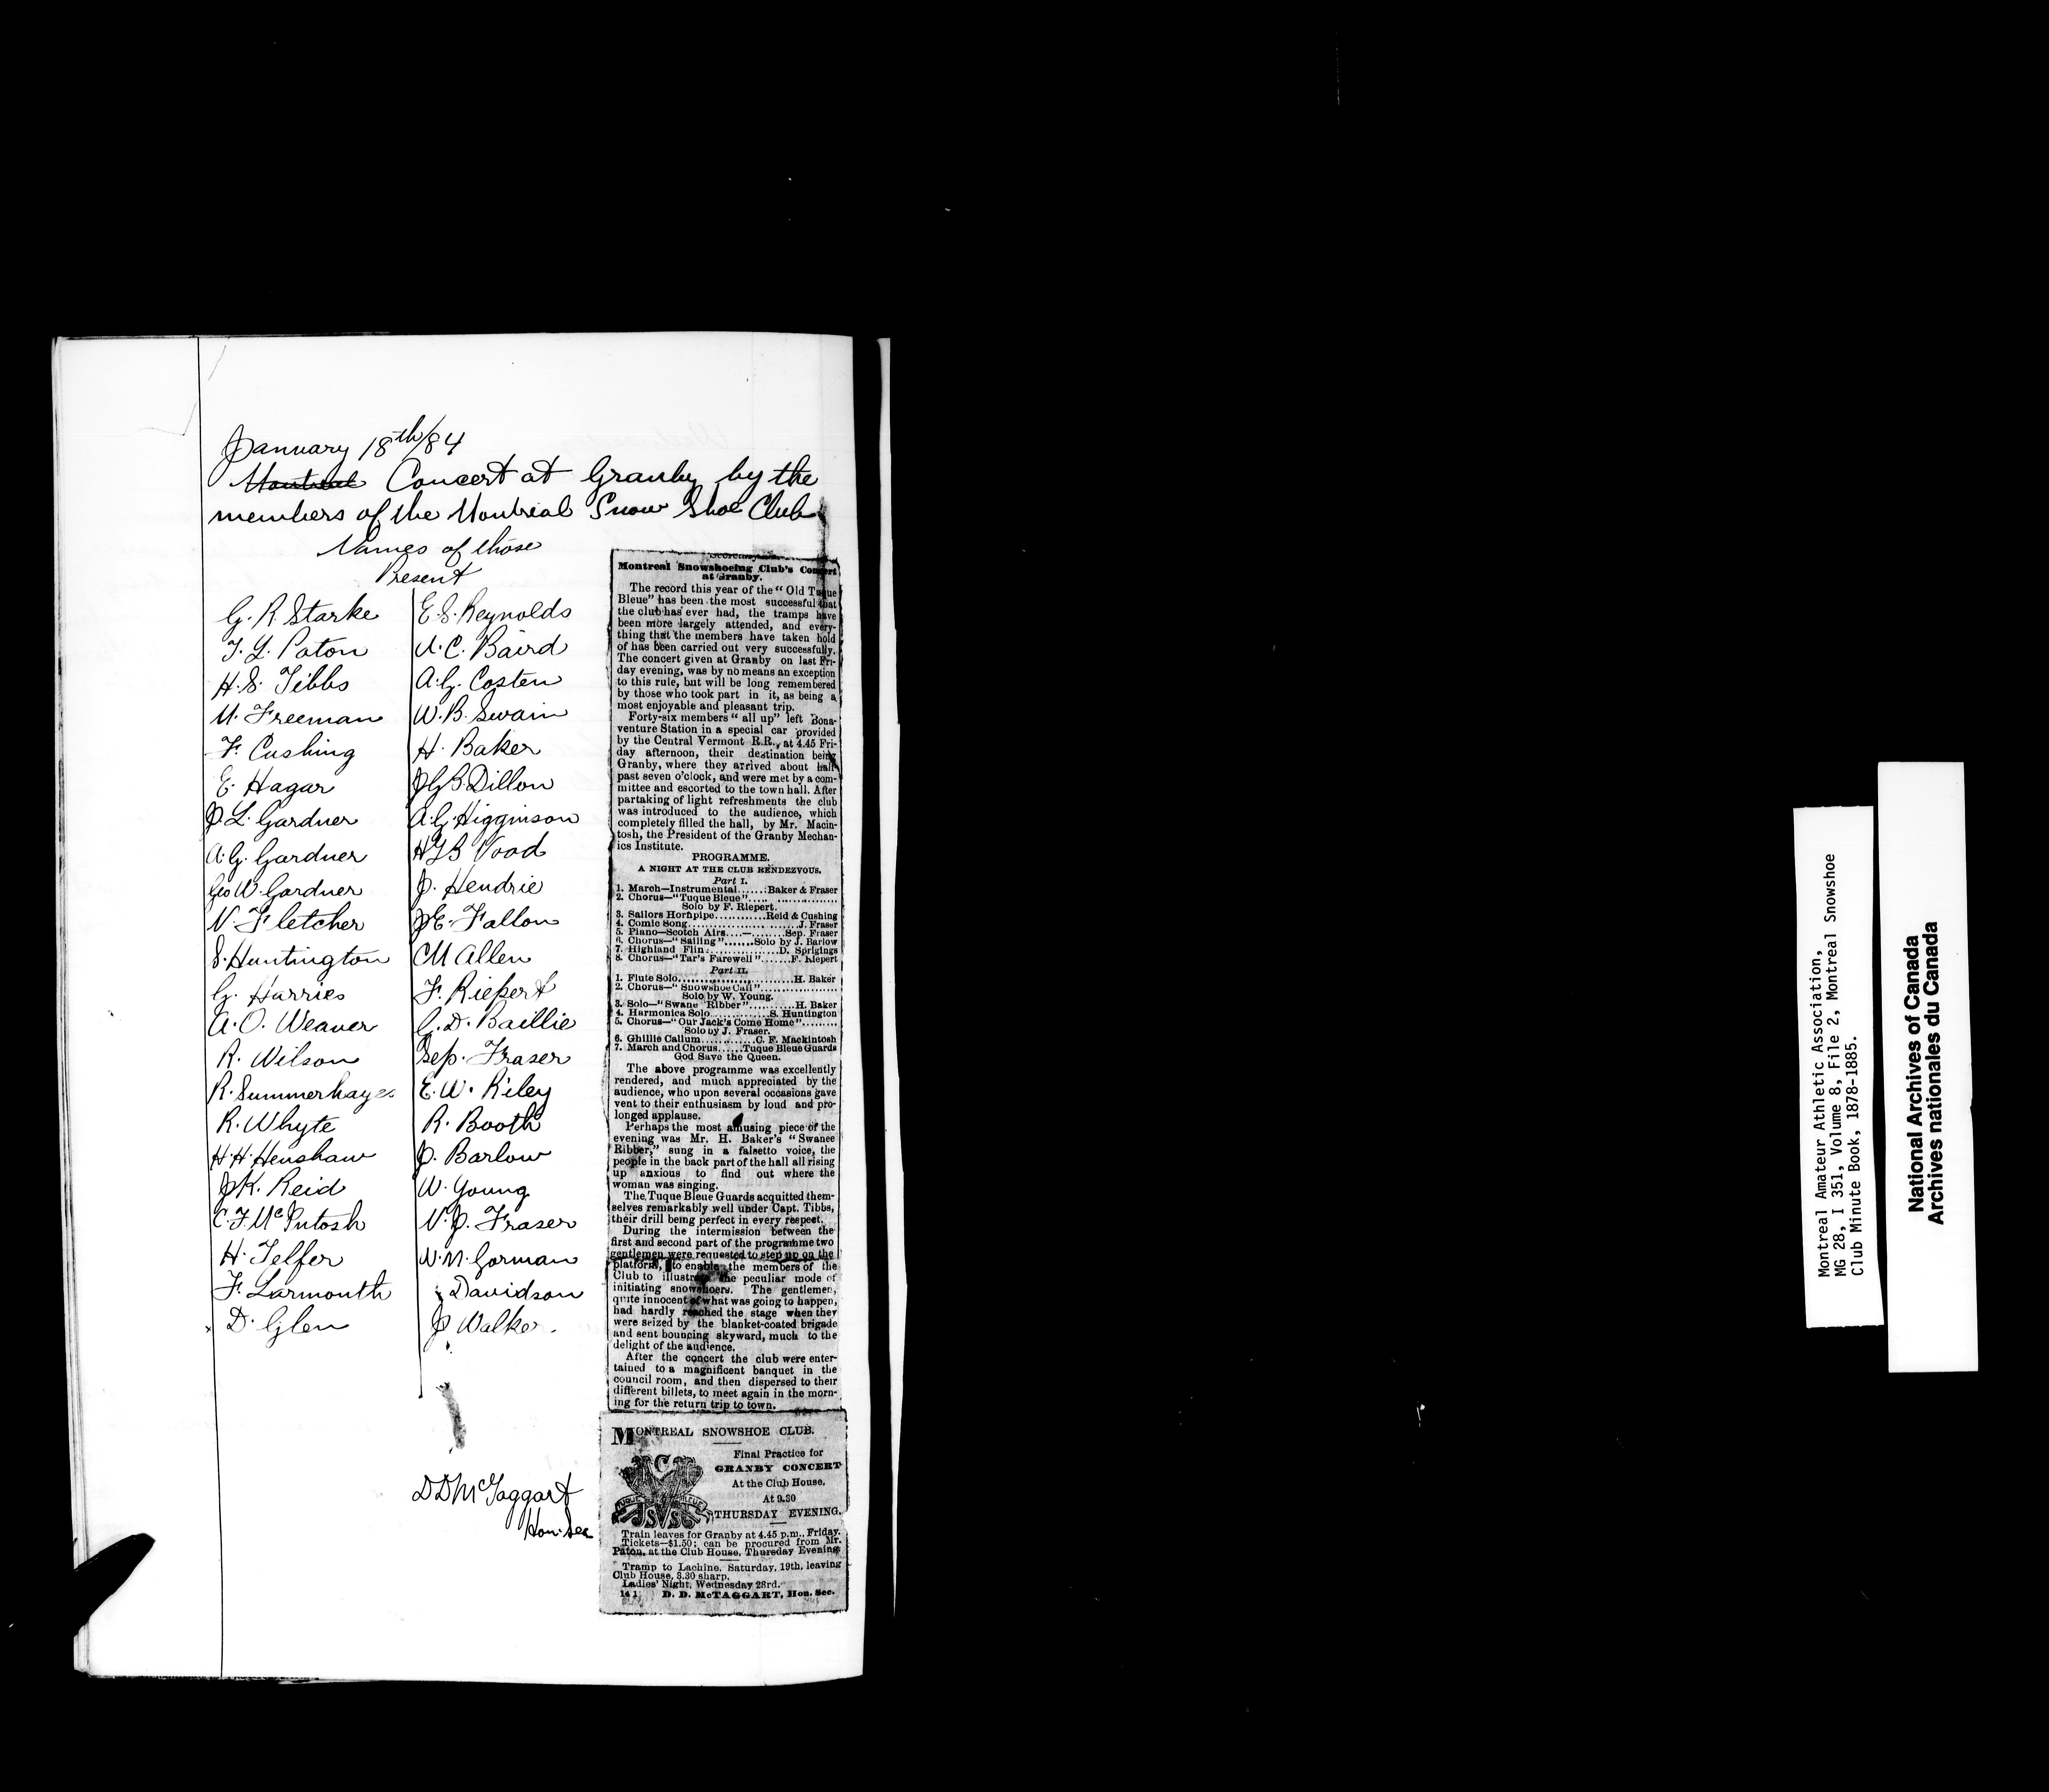 January 18th/84
Montreal Concert at Granby by the
members of the Montreal Snow Shoe Club
Names of those
Present
G. R. Starke
T. L. Paton
H. S. Tibbs
M. Freeman
F. Cushing
E. Hagar
J. L. Gardner
A. G. Gardner
Geo W. Gardner
N. Fletcher
S. Huntington
G. Harries
A. O. Weaver
R. Wilson
R. Summerhayes
R. Whyte
H. H. Henshaw
J K. Reid
C. F. McIntosh
H. Telfer
F. Larmonth
x D. Glen
E. S. Reynolds
A. C. Baird
A. G. Costen
W. B. Swain
H. Baker
J G B. Dillon
A. G. Higginson
Vood
J. Hendrie
J E. Fallon
C M Allen
F. Riepert
C. D. Baillie
Sep. Fraser
E. W. Riley
R. Booth
J. Barlow
W. Young
N. J. Fraser
W. M. Gorman
Davidson
J Walker.
D D McTaggart
Hon. Sec
Montreal Snowshoeing Club's Concert
at Granby.
The record this year of the "Old Tuque
Bleue" has been the most successful that
the club has ever had, the tramps have
been more largely attended, and every-
thing that the members have taken hold
of has been carried out very successfully.
The concert given at Granby on last Fri-
day evening, was by no means an exception
to this rule, but will be long remembered
by those who took part in it, as being a
most enjoyable and pleasant trip.
Forty-six members "all up" left Bona-
venture Station in a special car provided
by the Central Vermont R.R., at 4.45 Fri-
day afternoon, their destination being
Granby, where they arrived about half-
past seven o'clock, and were met by a com-
mittee and escorted to the town hall. After
partaking of light refreshments the club
was introduced to the audience, which
completely filled the hall, by Mr. Macin-
tosh, the President of the Granby Mechan-
ics Institute.
PROGRAMME.
A NIGHT AT THE CLUB RENDEZVOUS.
Part I.
1. March—Instrumental......Baker & Fraser
2. Chorus—"Tuque Bleue"..... ................
Solo by F. Riepert.
3. Sailors Hornpipe............Reid & Cushing
4. Comic Song............................J. Fraser
5. Piano—Scotch Airs....—........Sep. Fraser
6. Chorus—"Sailing".......Solo by J. Barlow
7. Highland Flin..................D. Sprigings
8. Chorus—"Tar's Farewell".......F. Riepert
Part II.
1. Flute Solo............................H. Baker
2. Chorus—"Snowshoe Call"..................
Solo by W. Young.
3. Solo—"Swane Ribber"...........H. Baker
4. Harmonica Solo..............S. Huntington
5. Chorus—"Our Jack's Come Home".........
Solo by J. Fraser.
6. Ghillie Callum............C. F. Mackintosh
7. March and Chorus......Tuque Bleue Guards
God Save the Queen.
The above programme was excellently
rendered, and much appreciated by the
audience, who upon several occasions gave
vent to their enthusiasm by loud and pro-
longed applause.
Perhaps the most amusing piece of the
evening was Mr. H. Baker's "Swanee
Ribber," sung in a falsetto voice, the
people in the back part of the hall all rising
up anxious to find out where the
woman was singing.
The Tuque Bleue Guards acquitted them-
selves remarkably well under Capt. Tibbs,
their drill being perfect in every respect.
During the intermission between the
first and second part of the programme two
gentlemen were requested to step up on the
platform, to enable the members of the
Club to illustrate the peculiar mode of
initiating snowshoers. The gentlemen,
quite innocent of what was going to happen,
had hardly reached the stage when they
were seized by the blanket-coated brigade
and sent bouncing skyward, much to the
delight of the audience.
After the concert the club were enter-
tained to a magnificent banquet in the
council room, and then dispersed to their
different billets, to meet again in the morn-
ing for the return trip to town.
MONTREAL SNOWSHOE CLUB.
Final Practice for
GRANBY CONCERT
At the Club House,
At 9.30
THURSDAY EVENING.
TUQUE BLEUE
Train leaves for Granby at 4.45 p.m., Friday.
Tickets—$1.50; can be procured from Mr.
Paton, at the Club House, Thursday Evening
Tramp to Lachine, Saturday, 19th, leaving
Club House, 3.30 sharp.
Ladies' Night, Wednesday 23rd.
D. D. McTAGGART, Hon. Sec.
Montreal Amateur Athletic Association,
MG 28, I 351, Volume 8, File 2, Montreal Snowshoe
Club Minute Book, 1878-1885.
National Archives of Canada
Archives nationales du Canada